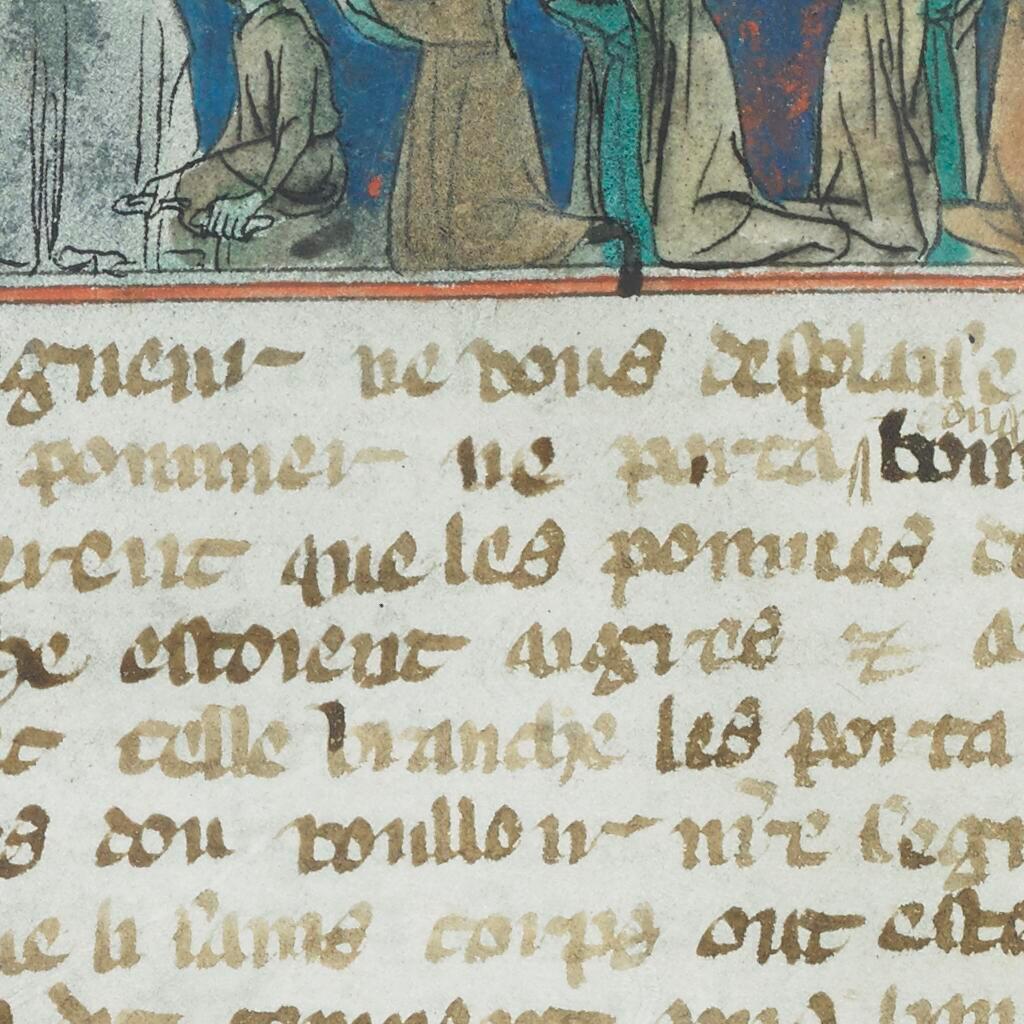 gneur ne vous desplaise
pommer ne porta bon
urent que les pommes de
he estoient aigres ⁊ a
t celle branche les porta
s dou voulloir nr̃e segn
ue li sains corps ont este